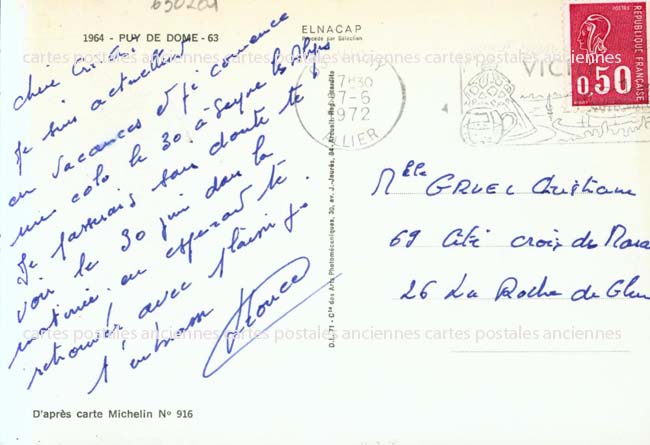 630201
1964 - PUY DE DOME - 63
ELNACAP
Procédé par Sélection
POSTES
REPUBLIQUE FRANÇAISE
0,50
17H30
7-6
1972
ALLIER
VIC
cartes postales anciennes cartes postales anciennes cartes postales anciennes
Chère
Je suis actuellement
en vacances et je commence
une colo le 30 à Seyne les Alpes
Je passerais sans doute te
voir le 30 juin dans la
matinée, en espérant te
retrouver avec plaisir je
t'embrasse
Melle GRUEL Christiane
69 Cité croix de
26 La Roche de Glun
D.L. 71 - Cie des Arts Photomécaniques, 30, av. J.-Jaurès, 94-Arcueil - Rep. interdite
cartes postales anciennes cartes postales anciennes cartes postales anciennes
D'après carte Michelin No 916